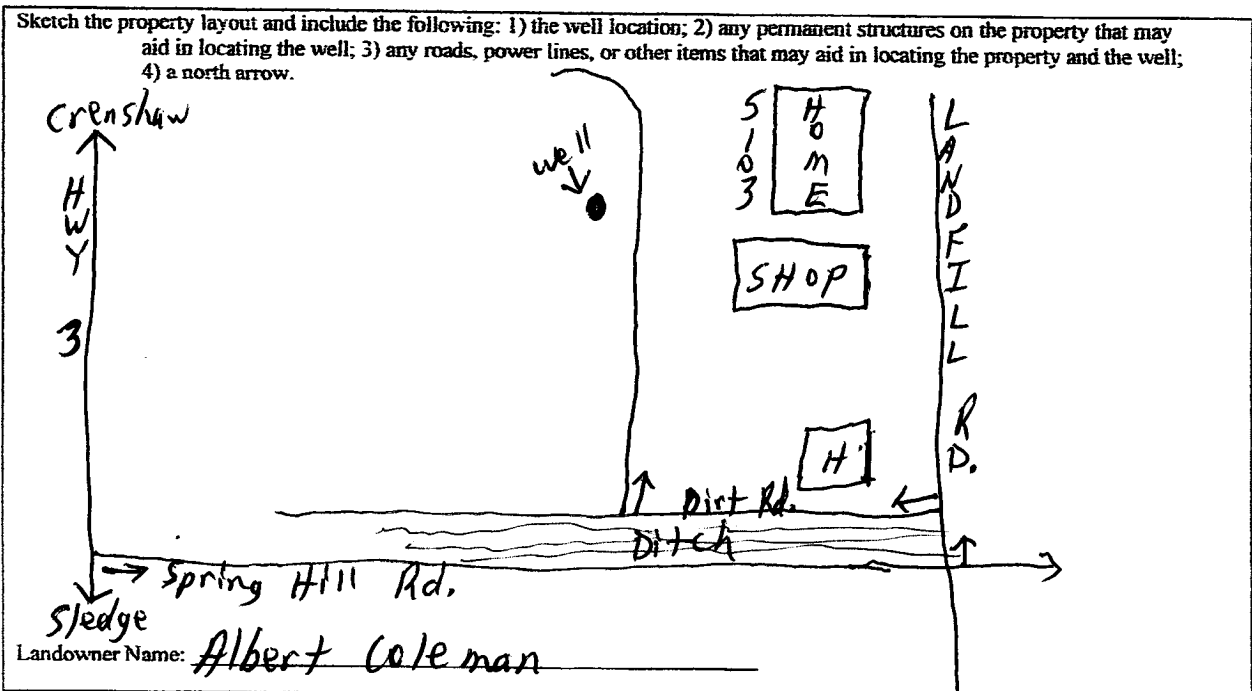 Sketch the property layout and include the following: 1) the well location; 2) any permanent structures on the property that may
aid in locating the well; 3) any roads, power lines, or other items that may aid in locating the property and the well;
4) a north arrow.
Crenshaw
HWY 3
well
5103
HOME
LANDFILL RD.
SHOP
H
Dirt Rd.
Ditch
Spring Hill Rd.
Sledge
Landowner Name: Albert Coleman